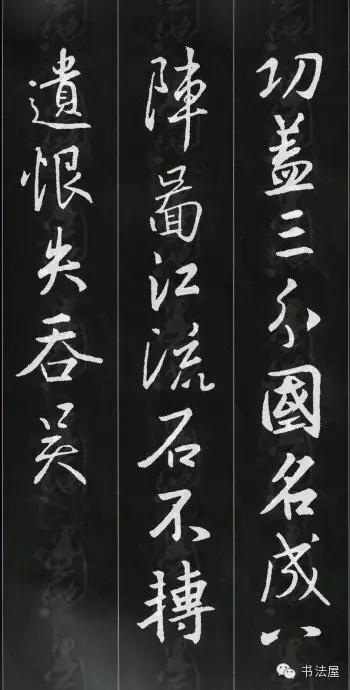 功盖三分國名成八
陣啚江流石不轉
遺恨失吞吴
书法屋